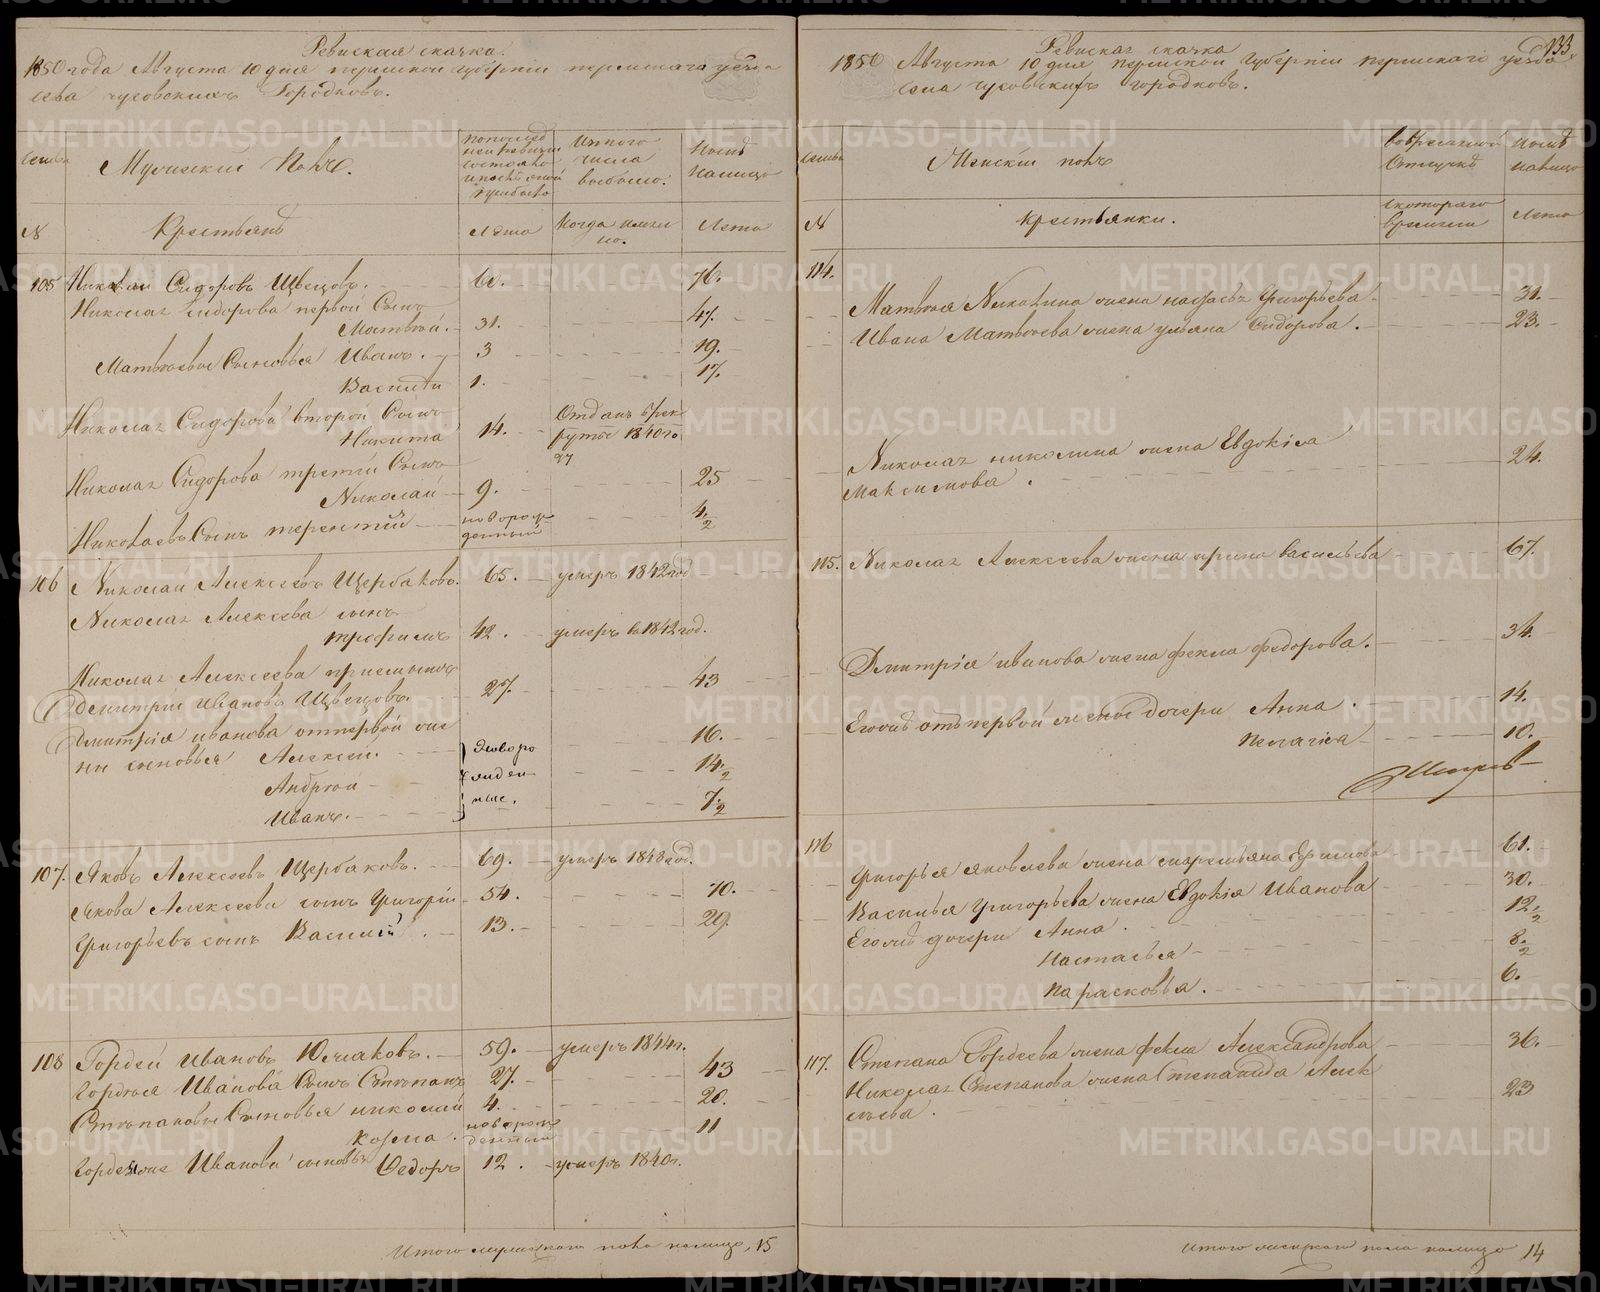 Ревиская сказка.
1850 года Августа 10 дня пермской губернии пермскаго уезда
села чусовскихъ Городковъ.
Семьи
Мужескій Полъ.
По послед
ней ревизіи
состояло
и после оной
прибыло
Изъ того
числа
выбыло.
Ныне
налицо
N
Крестьяне
Лета
Когда имен
но.
Лета
105 Николай Сидоровъ Швецовъ. 60. 76.
Николая Сидорова первой Сынъ
Матвей. 31. 47.
Матвеевы Сыновья Иванъ. 3 19.
Василій 1. 17.
Николая Сидорова второй Сынъ
Никита 14. Отданъ в рек
руты 1840го
Николая Сидорова третій Сынъ
Николай 9. 25
Николаевъ Сынъ терентій новорож
денный 4/2
106 Николай Алексеевъ Щербаковъ. 65. умеръ 1842 год
Николая Алексеева сынъ
трефилъ 42. умеръ в 1842 год.
Николая Алексеева пріемышъ
Дмитрій Ивановъ Швецовъ. 27. 43
Дмитрія иванова отпервой же
ны сыновья Алексей. 16.
Андрей 14/2
Иванъ. 7/2
107. Яковъ Алексеевъ Щербаковъ. 69. умеръ 1848 год.
Якова Алексеева сынъ Григорій 54. 70.
Григорьевъ сынъ Василій. 13. 29.
108 Гордей Ивановъ Южаковъ. 59. умеръ 1844г.
Гордея Иванова Сынъ Степанъ 27. 43
Степановы Сыновья николай 4. 20.
Козма. новорож
денный 11
Иванова сыновья Федоръ 12. умеръ 1840г.
Итого мужескаго пола налицо, 15
133
Ревиская сказка
1850 Августа 10 дня пермской губерніи пермскаго уезда
села чусовскихъ городковъ.
Семьи
Женскій полъ
Во временной
Отлучке
Ныне
налицо
N
Крестьянки.
с котораго
времени
Лета
114.
Матвея Николаина жена настасья Григорьева 31.
Ивана Матвеева жена ульяна Сидорова. 23.
Николая николина жена Евдокіея
Максимова. 24.
115. Николая Алексеева жена ирина васильева 67.
Дмитрія иванова жена фекла федорова. 34.
Егожъ отъ первой жены дочери Анна. 14.
пелагіея 10.
116
Григорья яковлева жена ефимова 61.
Василья Григорьева жена Евдокія Иванова 30.
Егожъ дочери Анна. 12/2
Настасья 8/2
Парасковья. 6.
117. Степана Гордеева жена фекла Александрова 36.
Николая Степанова жена Степанида Алек
сеева. 23
Итого женскаго пола налицо 14
METRIKI.GASO-URAL.RU